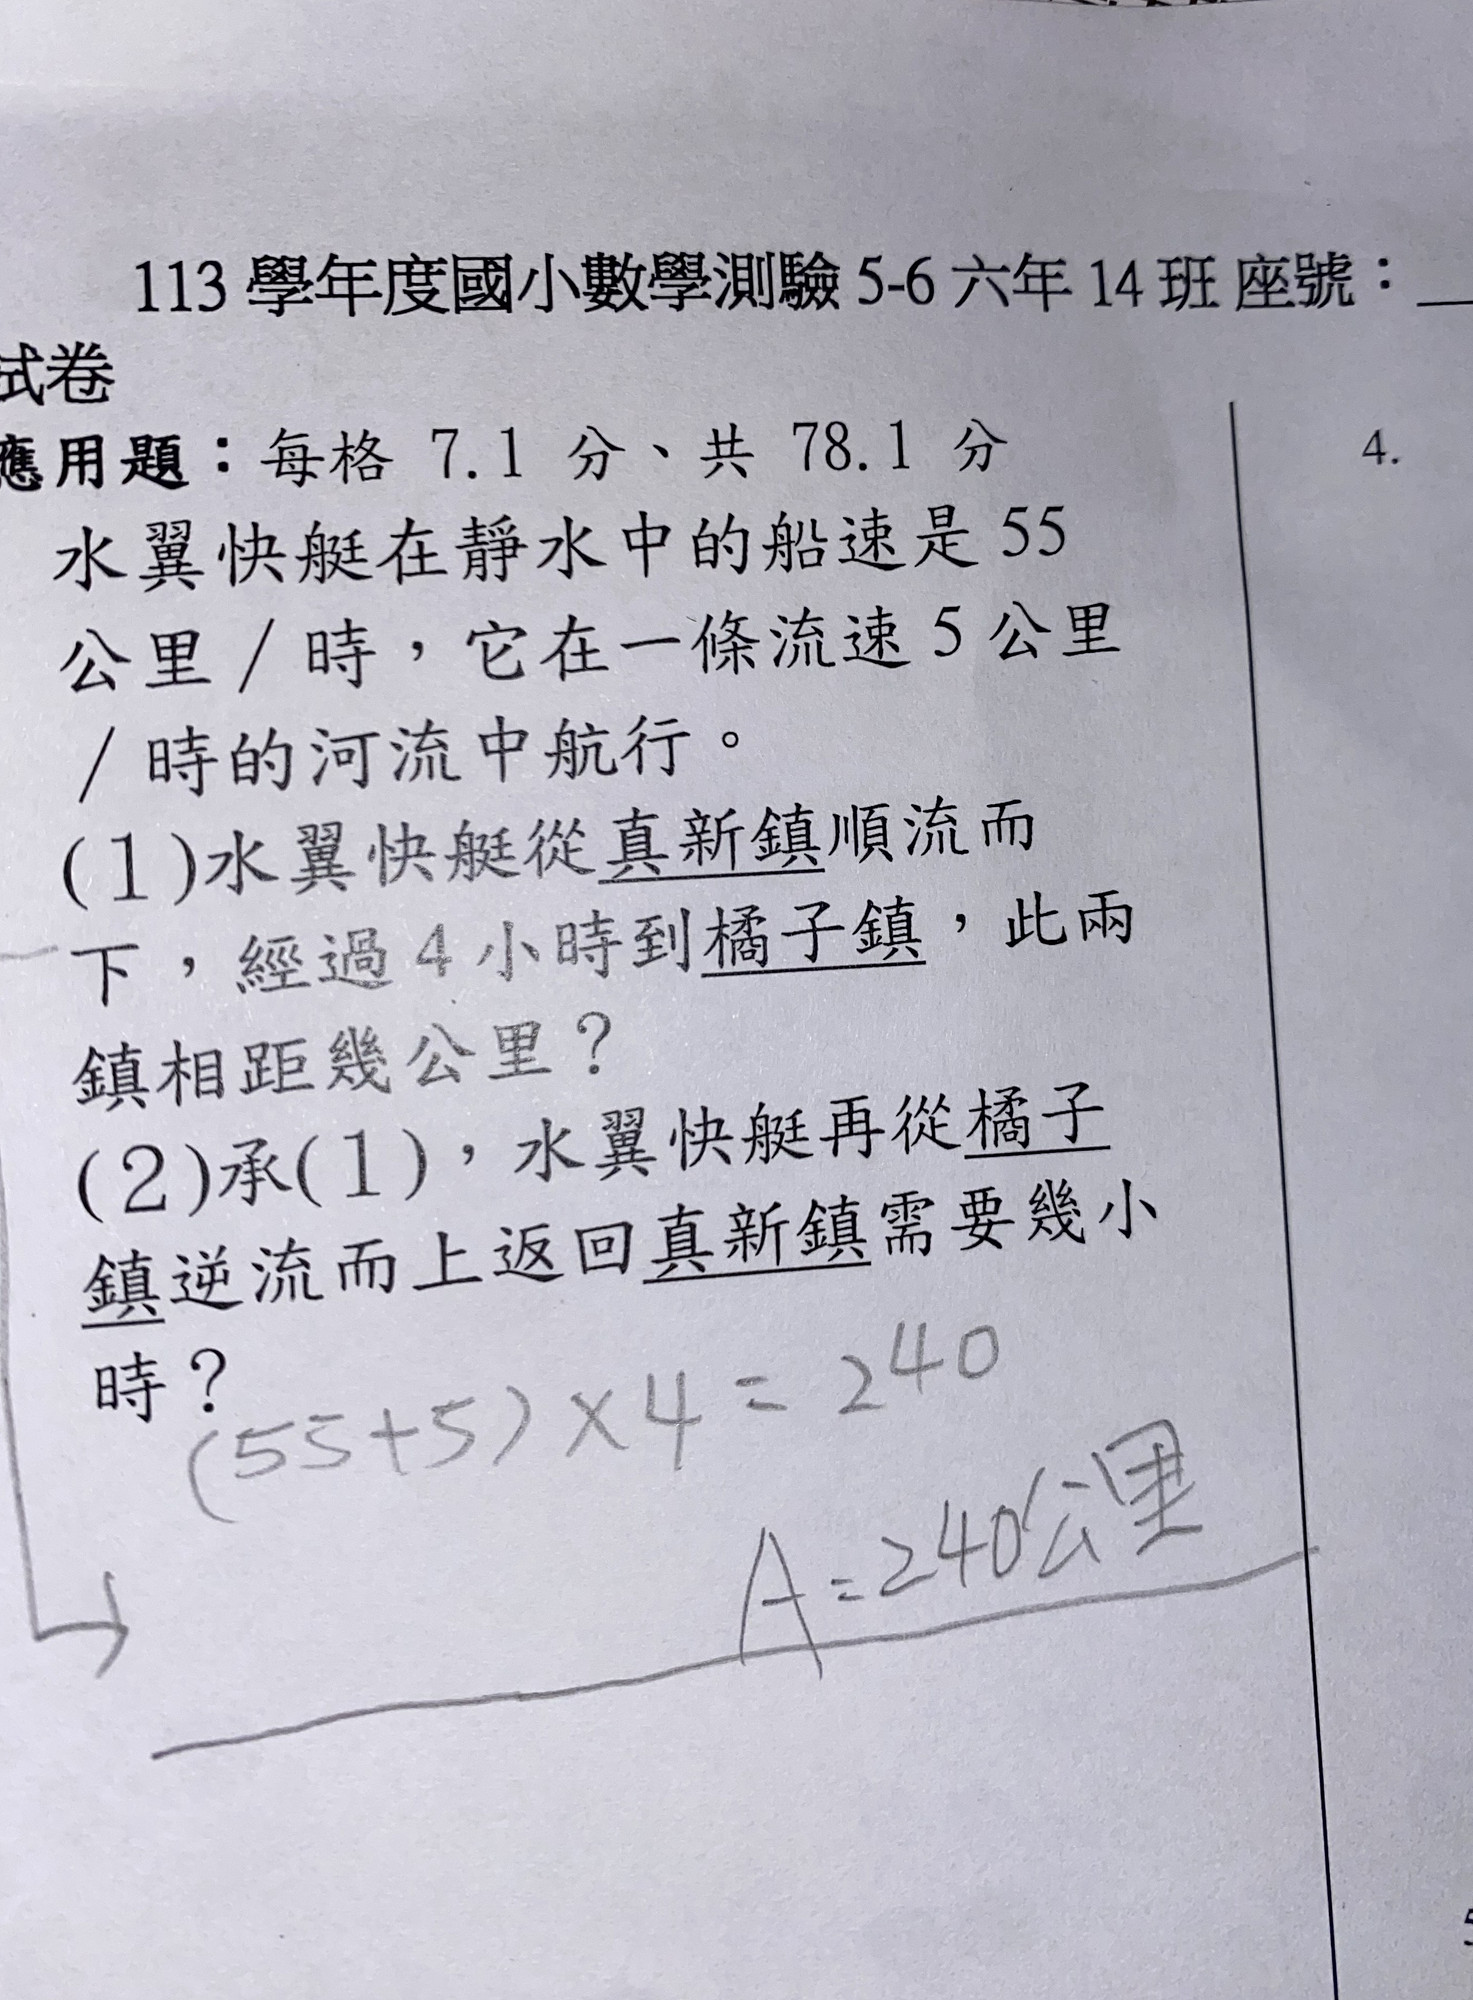 113 學年度國小數學測驗 5-6 六年 14 班 座號：
試卷
應用題：每格 7.1 分、共 78.1 分
4.
水翼快艇在靜水中的船速是 55
公里／時，它在一條流速 5 公里
／時的河流中航行。
(1)水翼快艇從真新鎮順流而
下，經過 4 小時到橘子鎮，此兩
鎮相距幾公里？
(2)承(1)，水翼快艇再從橘子
鎮逆流而上返回真新鎮需要幾小
時？
(55+5)×4=240
A=240公里